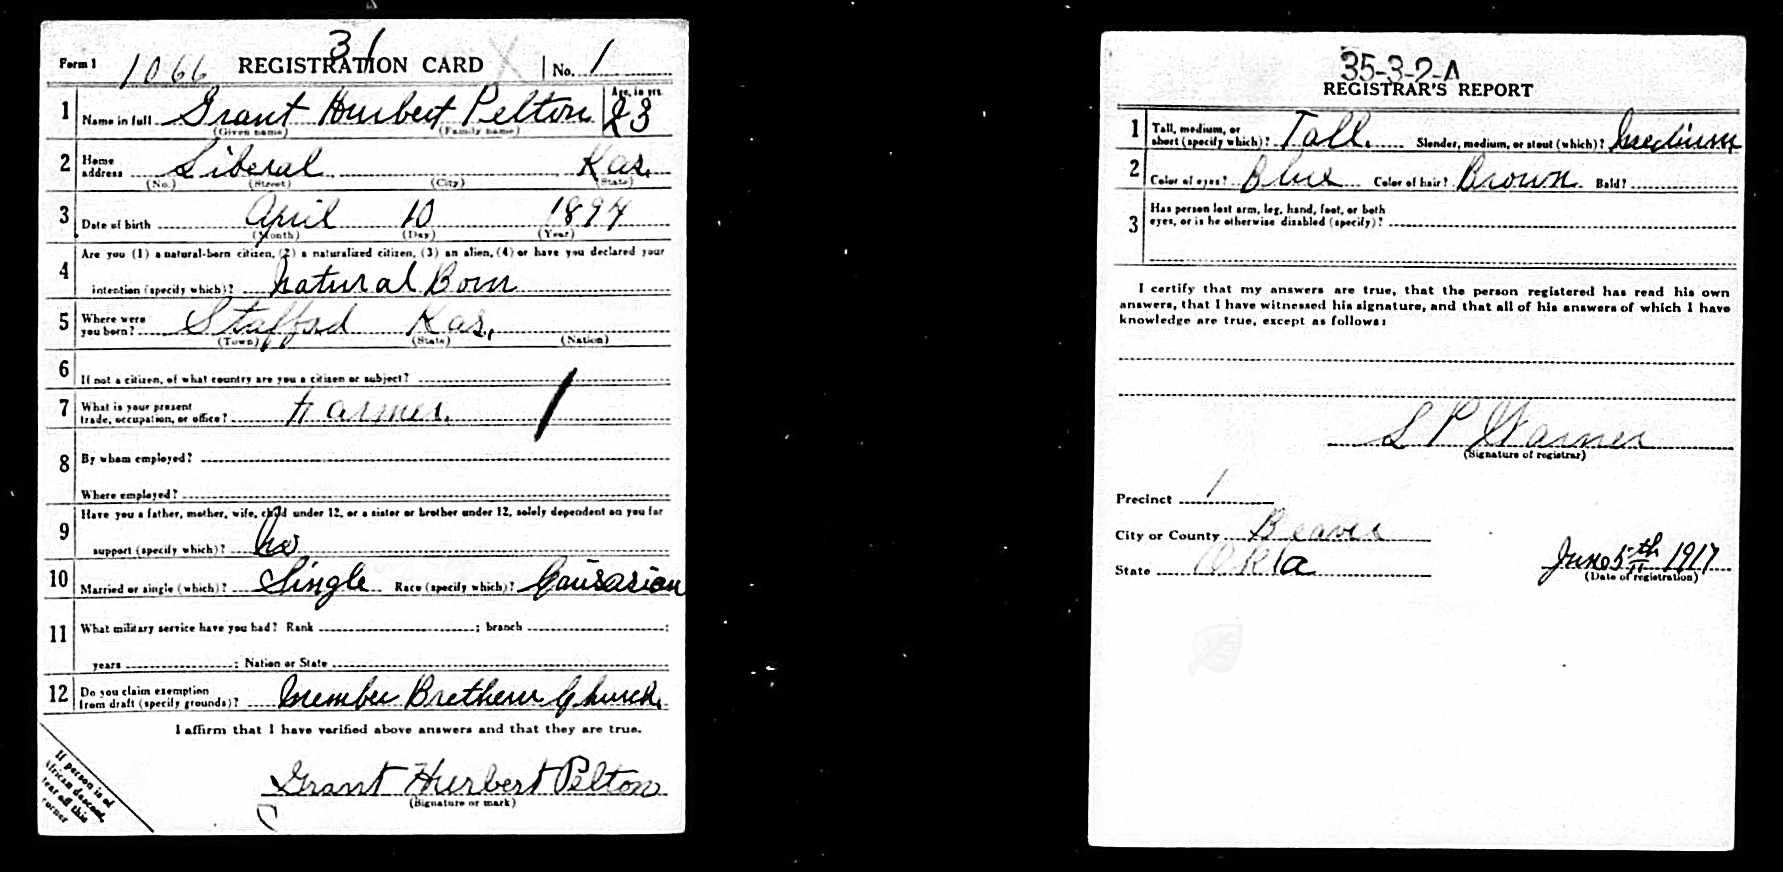 31
Form 1 1066 REGISTRATION CARD No. 1
1 Name in full Grant Hurbert Pelton Age, in yrs. 23
(Given name) (Family name)
2 Home address Liberal Kas.
(No.) (Street) (City) (State)
3 Date of birth April 10 1894
(Month) (Day) (Year)
4 Are you (1) a natural-born citizen, (2) a naturalized citizen, (3) an alien, (4) or have you declared your
intention (specify which)? Natural Born
5 Where were you born? Stafford Kas.
(Town) (State) (Nation)
6 If not a citizen, of what country are you a citizen or subject?
7 What is your present trade, occupation, or office? Farmer.
8 By whom employed?
Where employed?
9 Have you a father, mother, wife, child under 12, or a sister or brother under 12, solely dependent on you for
support (specify which)? No
10 Married or single (which)? Single Race (specify which)? Causasian
11 What military service have you had? Rank ; branch ;
years ; Nation or State
12 Do you claim exemption from draft (specify grounds)? Member Brethern Church.
I affirm that I have verified above answers and that they are true.
Grant Hurbert Pelton
(Signature or mark)
If person is of
African descent,
tear off this
corner
35-3-2-A
REGISTRAR'S REPORT
1 Tall, medium, or short (specify which)? Tall. Slender, medium, or stout (which)? Medium
2 Color of eyes? Blue Color of hair? Brown Bald?
3 Has person lost arm, leg, hand, foot, or both
eyes, or is he otherwise disabled (specify)?
I certify that my answers are true, that the person registered has read his own
answers, that I have witnessed his signature, and that all of his answers of which I have
knowledge are true, except as follows:
S P Warner
(Signature of registrar)
Precinct 1
City or County Beaver
State Okla June 5th 1917
(Date of registration)